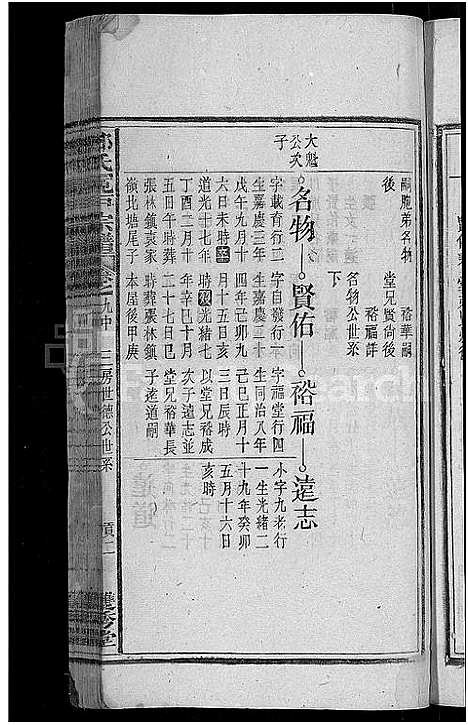 嗣胞弟名物
後
堂兄賢尚後
裕華嗣
裕福詳
名物公世系
下
大魁
公次
子
名物
字載育行二
生嘉慶三年
戊午九月十
六日未時
道光十七年
丁酉二月十
五日午時葬
張林鎮袁家
嶺北塘尾子
賢佑
字自發行一
生嘉慶二十
四年己卯九
月十五日亥
時 光緒七
年辛巳十月
二十七日巳
時葬張林鎮
本屋後甲庚
裕福
字福堂行四
生同治八年
己巳正月十
三日辰時
以堂兄裕成
次子遠志並
堂兄裕華長
子遠道嗣
遠志
小字九老行
一生光緒二
十九年癸卯
五月十六日
亥時
氏 宗譜 卷之九中 三房世德公世系